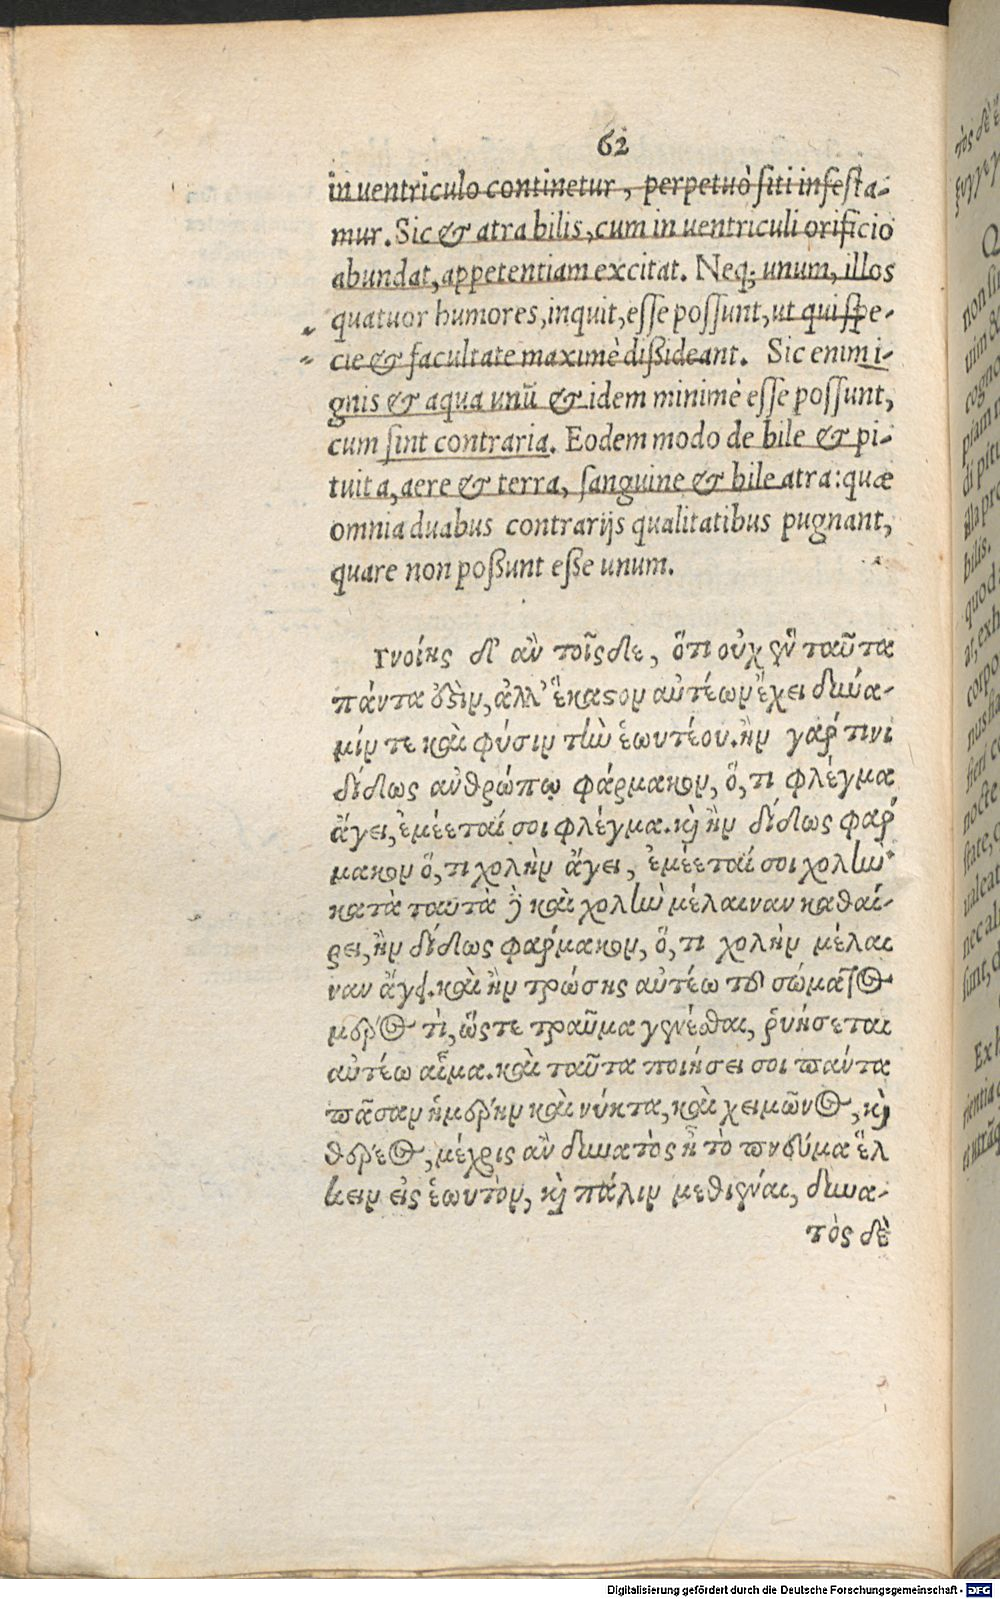 62
in uentriculo continetur, perpetuò siti infesta-
mur. Sic & atra bilis, cum in uentriculi orificio
abundat, appetentiam excitat. Neq; unum, illos
quatuor humores, inquit, esse possunt, ut qui spe-
cie & facultate maximè dißideant. Sic enim i-
gnis & aqua unū & idem minimè esse possunt,
cum sint contraria. Eodem modo de bile & pi-
tuita, aere & terra, sanguine & bile atra: quæ
omnia duabus contrarijs qualitatibus pugnant,
quare non poßunt eße unum.
Γνοίης δ' ἂν τοῖςδε, ὅτι οὐχ ἓν ταῦτα
πάντα ὅξιν, ἀλλ' ἕκαςον αὐτέων ἔχει δυνά-
μίν τε καὶ φύσιν τὴν ἑωυτέου. ἢν γάρ τινι
δίδως ἀνθρώπῳ φάρμακον, ὅ, τι φλέγμα
ἄγει, ἐμέεταί σοι φλέγμα. κὶ ἢν δίδως φάρ
μακον ὅ, τι χολὴν ἄγει, ἐμέεταί σοι χολὴν·
κατὰ ταυτὰ ἢ καὶ χολὴν μέλαιναν καθαί-
ρει, ἢν δίδως φάρμακον, ὅ, τι χολὴν μέλαι
ναν ἄγῃ. καὶ ἢν τρώσης αὐτέω τοῦ σώματος
μέρος τὶ, ὥςτε τραῦμα γενέσθαι, ῥυήσεται
αὐτέω αἷμα. καὶ ταῦτα ποιήσει σοι πάντα
πᾶσαν ἡμέρην καὶ νύκτα, καὶ χειμῶνος, κὶ
θέρεος, μέχρις ἂν δυνατὸς ᾖ τὸ πνεῦμα ἕλ
κειν εἰς ἑωυτὸν, κὶ πάλιν μεθιέναι, δυνα-
τὸς δὲ
Ex h
Digitalisierung gefördert durch die Deutsche Forschungsgemeinschaft - DFG